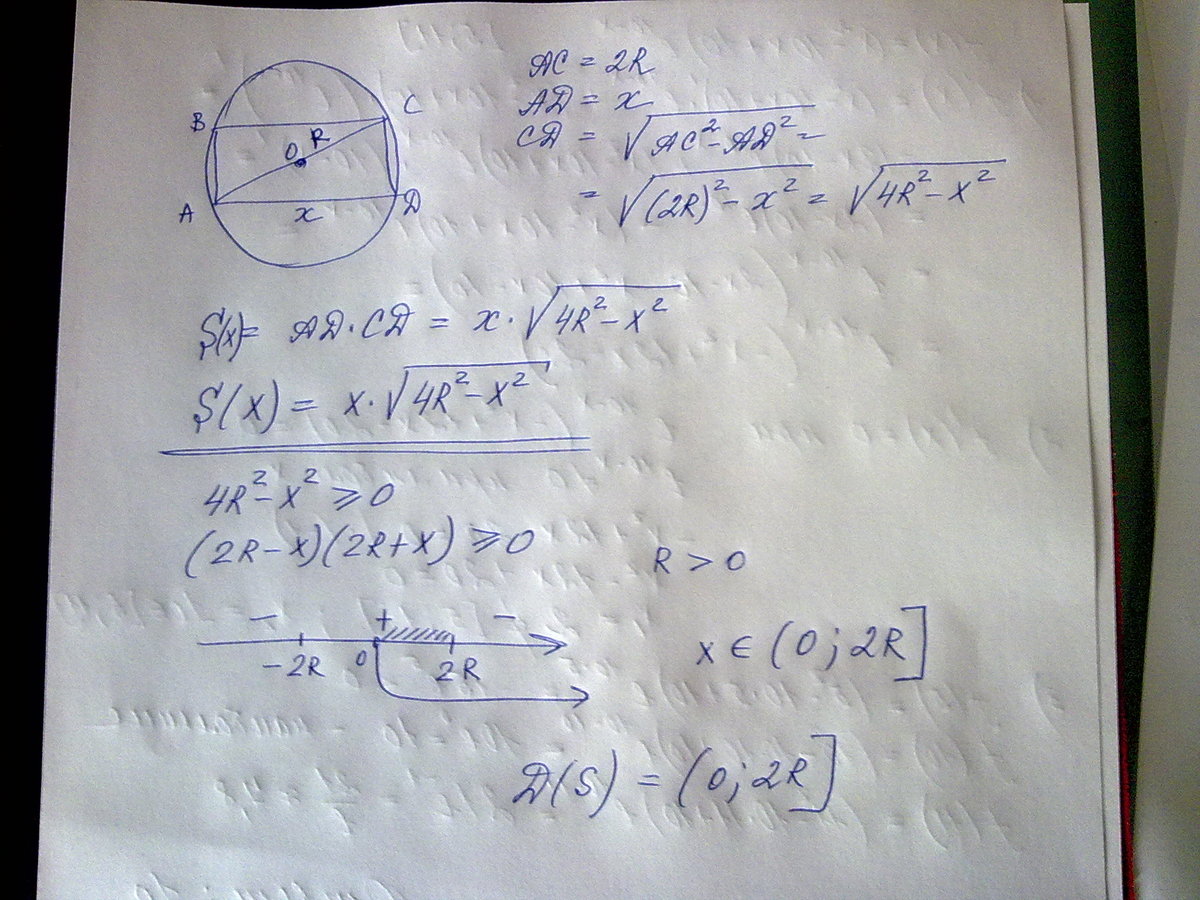 B
C
O
R
A
x
D
AC = 2R
AD = x
CD = √(AC² - AD²) =
= √((2R)² - x²) = √(4R² - x²)
S(x) = AD · CD = x · √(4R² - x²)
S(x) = x · √(4R² - x²)
4R² - x² ⩾ 0
(2R - x)(2R + x) ⩾ 0
R > 0
- + -
-2R 0 2R
x ∈ (0; 2R]
D(S) = (0; 2R]